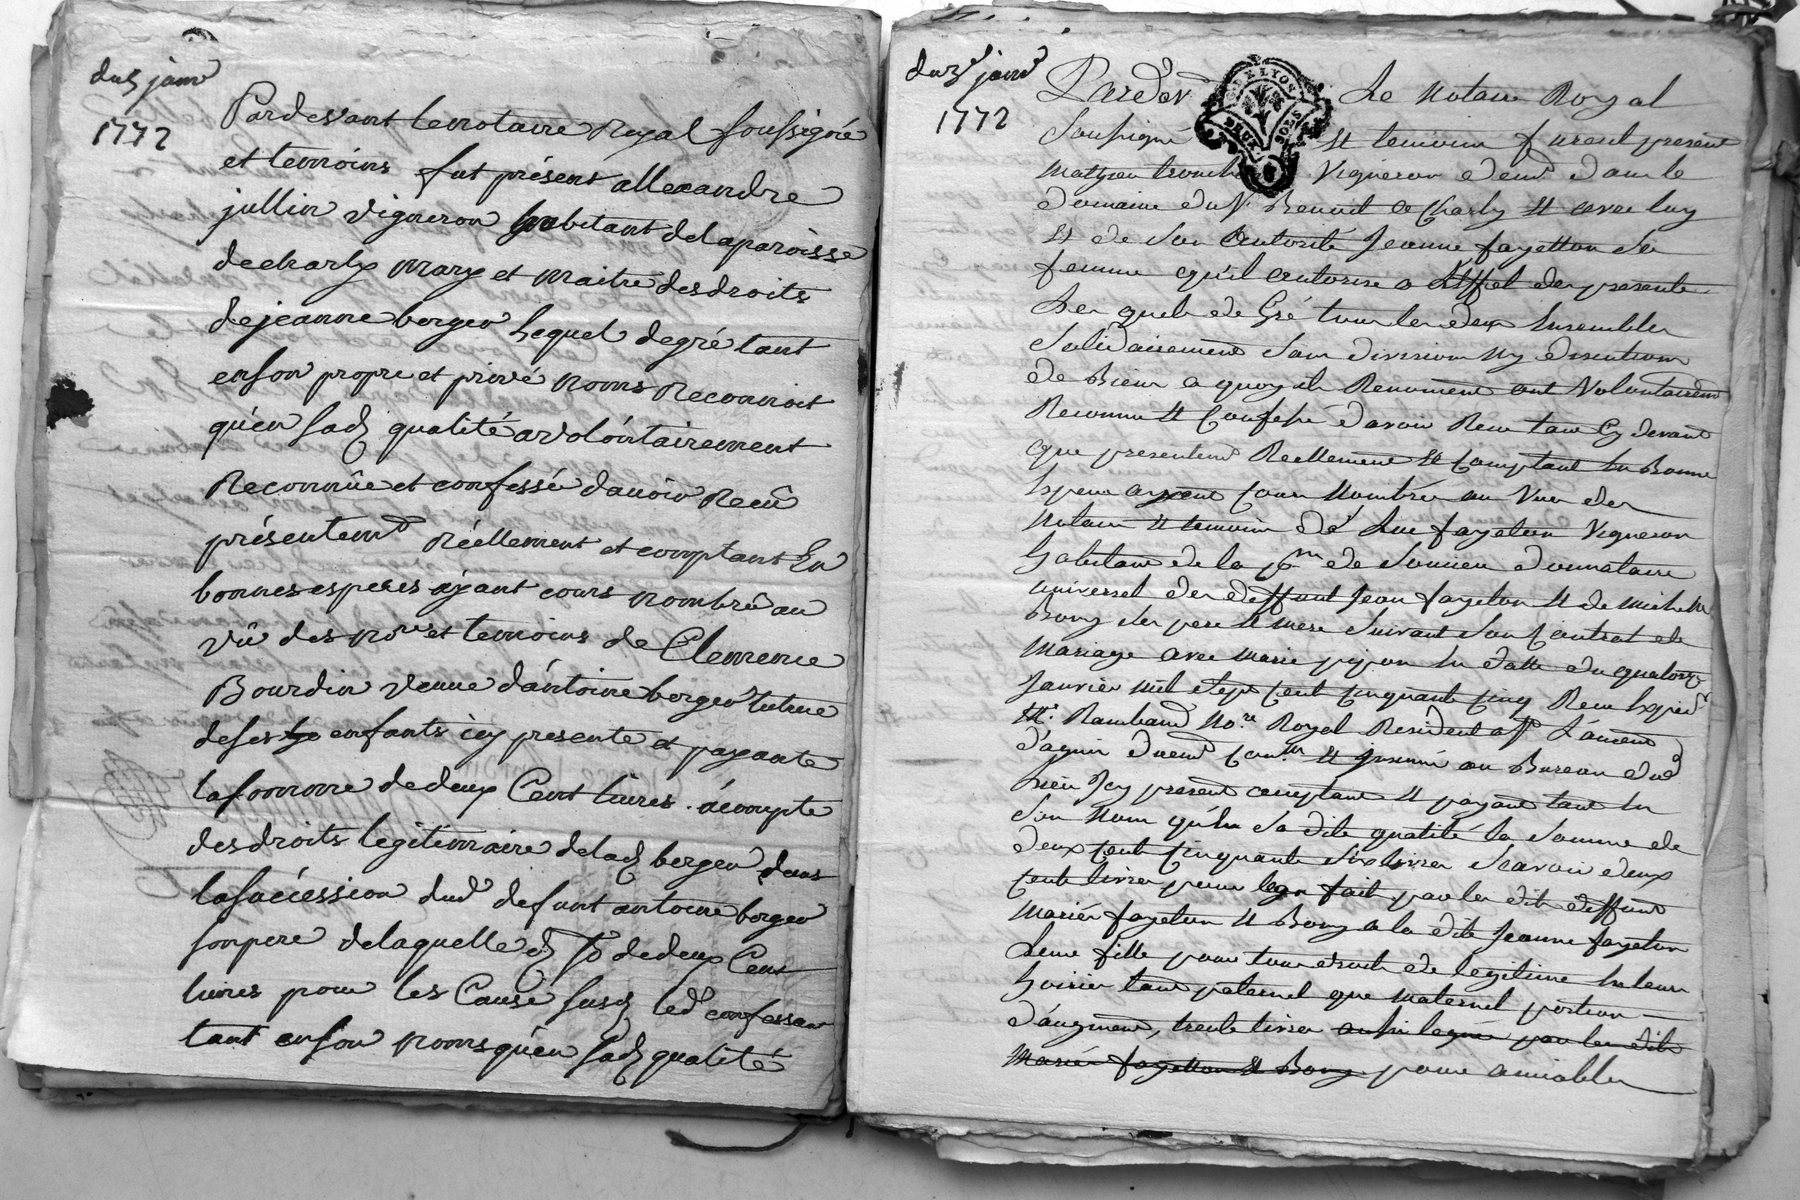 du 5 janvr
1772
Pardevant le notaire Royal soussigné
et temoins fut présent allexandre
jullin vigneron habitant de la paroisse
de charly mary et maitre des droits
de jeanne berger lequel de gré tant
en son propre et privé noms reconnoit
qu'en sad qualité a volontairement
Reconnüe et confessé d'avoir Recû
présentemt réellement et comptant En
bonnes especes ayant cours nombré au
vû des nores et temoins de Clemence
Bourdin veuve d'antoine berger tutrice
de ses enfants icy presente et payante
la somme de deux Cent livres . àcompte
des droits legitimaire de lad berger dans
la succession dud defunt antoine berger
son pere de laquelle de deux Cent
livres pour les Cause susd led confessant
tant en son noms qu'en sad qualité
du 5e janvr
1772
Pardev Le Notaire Royal
Soussigné GDE LYON DEUX SOLS & temoins furent present
Mathieu Vigneron demt dans le
domaine du Sr Benoit a Charly & avec luy
& de son autorité Jeanne fayetton sa
femme qu'il autorise a L'effet des presente
Les quels de Gré tous les deux Ensembles
Solidairement sans division ny discution
de Biens a quoy ils Renoncent ont Volontairemt
Reconnu & Confessé d'avoir Reçu tant cy devant
que presentemt Reellement & Comptant En Bonne
Espece ayant cour Nombrée au Vue des
Notaire & temoins de Luc fayeton Vigneron
habitant de la psse de Soucieu donnataire
universel des deffunt Jean fayeton & de Michelle
Bony ses pere & mere suivant son Contrat de
Mariage avec Marie pijon En datte du quatorze
Janvier mil sept cent cinquante cinq Reçu Expedie
Me Rambaud Nore Royal Resident a St Laurent
d'agny duemt Contlé & Insinué au Bureau dud
lieu Icy present comptant & payant tant En
Son Nom qu'En Sa dite qualité la Somme de
deux Cent Cinquante Six livres Scavoir deux
Cents livres pour legs fait par les dits deffunt
Mariés fayeton & Bony a la dite Jeanne fayeton
Leur fille pour tous droits de legitime En leurs
hoirier tant paternel que maternel portion
d'augment, trente livres aussi leguée par les dits
Mariés fayetton & Bony pour amiables